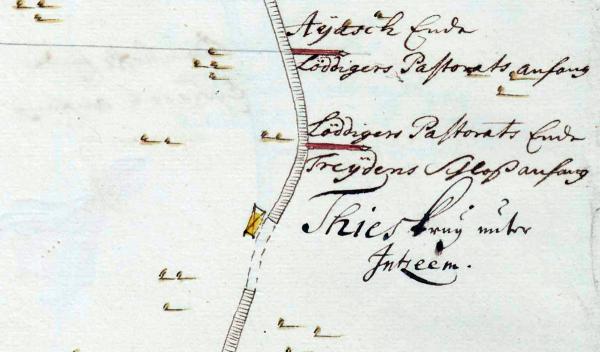 Aÿasch Ende
Löddigers Pastorats anfang
Löddigers Pastorats Ende
Treÿdens Schloß anfang
Thies krug unter
Inzeem.